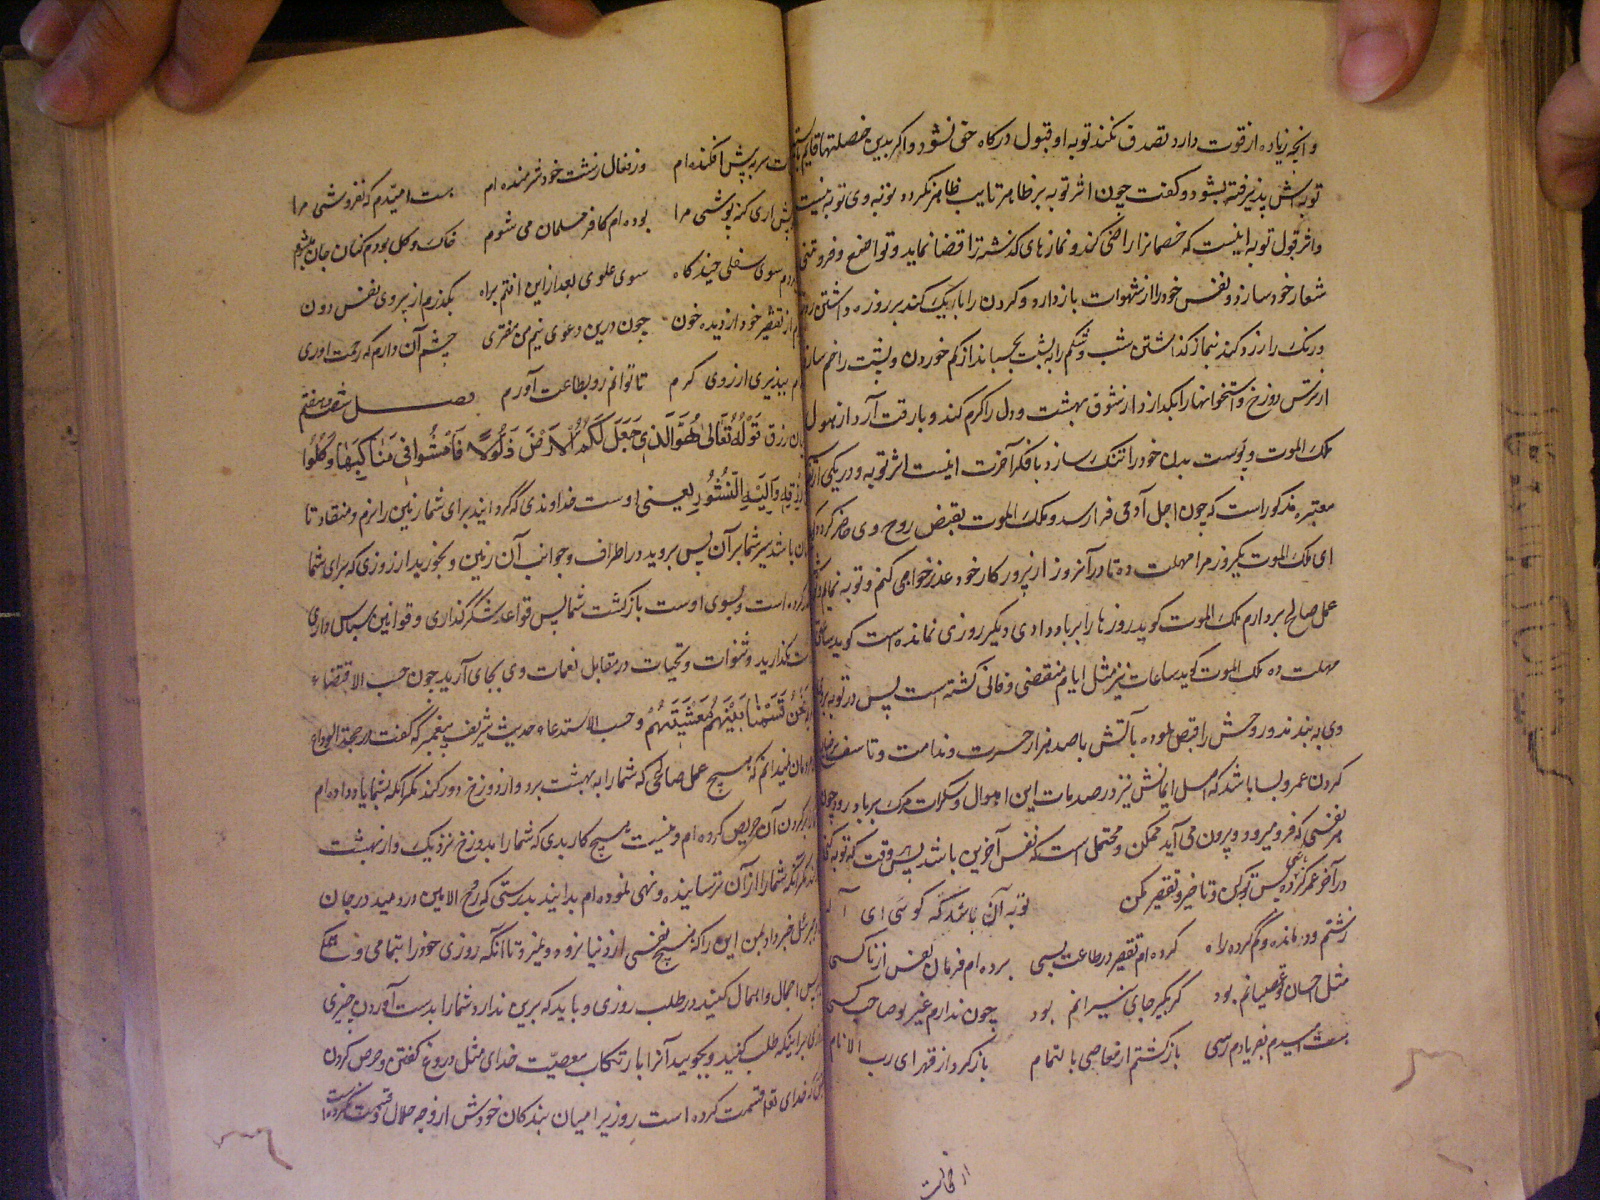 وانچه زیاده از قوت دارد تصدق نکند توبه او قبول درکاه حق نشود و اکر بدین خصلتها قایم
توبه‌ش پذیرفته بشود و کفت چون اثر توبه بر ظاهر تایب ظاهر نکردد توبه وی توبه نیست
و اثر قبول توبه اینست که خصمانرا راضی کند و نمازهای کذشته را قضا نماید و تواضع و فروتنی
شعار خود سازد و نفس خود را از شهوات باز دارد و کردن را باریک کند بر روزه داشتن
و رنک را زرد کند بنماز کذاشتن شب و شکم را به پشت بچسباند از کم خوردن و پشت را خم سازد
از ترس دوزخ و استخوانها را بکدازد از شوق بهشت و دل را کرم کند و با رقت آرد از هول
ملک الموت و پوست بدن خود را تنک سازد با فکر آخرت اینست اثر توبه و در یکی از
معتبره مذکور است که چون اجل آدمی فرا رسد و ملک الموت بقبض روح وی حاضر کردد
ای ملک الموت یکروز مرا مهلت ده تا در آنروز از پرورکار خود عذر خواهی کنم و توبه نمایم
عمل صالح بردارم ملک الموت کوید روزها را برباد دادی دیکر روزی نمانده است کوید ساعتی
مهلت ده ملک الموت کوید ساعات نیز مثل ایام منقضی و فانی کشته است پس در توبه بر
وی به بندند و روحش را قبض نموده باکش با صد هزار حسرت و ندامت و تاسف
کردن عمر و بسا باشد که اصل ایمانش نیز در صدمات این اهوال و سکرات مرک برباد رود چون
هر نفسی که فرو میرود و بیرون می آید ممکن و محتمل است که نفس آخرین باشد پس وقت که توبه
در آخر عمر کرده پس توبه کن و تاخیر و تقصیر مکن توبه آن باشد که کوئی ای
زشتم و درمانده و کم کرده راه کرده ام تقصیر در طاعت بسی برده ام فرمان نفس از ناکسی
مثل احسان تو عصیانم بود کر بکیر جای نیرانم بود چون ندارم غیر تو صاحب کسی
هست امیدم بفریادم رسی بازکشتم از معاصی بالتمام بازکرد از قهر ای رب الانام
از خجالت
سر به پیش افکنده ام وز فعال زشت خود شرمنده ام هست امیدم که نفروشی مرا
کنه پوشی مرا بوده ام کافر مسلمان می شوم خاک و کل بودم کنان جان میشوم
سوی سفلی چند کاه سوی علوی بعد از این افتم براه بکذرم از پیروی نفس دون
از تقصیر خود از دیده خون چون درین دعوی نیم من مفتری چشم آن دارم که رحمت آوری
بپذیری از روی کرم تا توانم رو بطاعت آورم فصل شصت و هفتم
رزق قوله تعالی هو الذی جعل لکم الارض ذلولا فامشوا فی مناکبها وکلوا
من رزقه والیه النشور یعنی اوست خداوندی که کردانید برای شما زمین را نرم و منقاد تا
باشد سیر شما بر آن پس بروید در اطراف و جوانب آن زمین و بخورید از روزی که برای شما
کرده است و بسوی اوست بازکشت شما پس قواعد شکرکذاری و قوانین سپاس داری
بکذارید و ثنوات و تحیات در مقابل نعمات وی بجای آرید چون حسب الاقتضاء
نحن قسمنا بینهم معیشتهم و حسب الاستدعاء حدیث شریف پیغمبر که کفت در حجة الوداع
نمیدانم که هیچ عمل صالحی که شما را به بهشت برد و از دوزخ دور کند مکر آنکه بشما یاد داده ام
کردن آن حریص کرده ام و نیست هیچ کار بدی که شما را بدوزخ نزدیک و از بهشت
مکر آنکه شما را از آن ترسانیده و نهی نموده ام بدانید بدرستی که روح الامین دردمید در جان
جبرئیل خبر داد بمن این را که هیچ نفسی از دنیا نرود و نمیرد تا آنکه روزی خود را بتمامی
پس اجمال و اهمال کنید در طلب روزی و باید که برین ندارد شما را بدست آوردن چیزی
بر اینکه طلب کنید و بجویید آنرا با رتکاب معصیت خدای مثل دروغ کفتن و حرص کردن
خدای تعا قسمت کرده است روزی را میان بندکان خودش از وجه حلال و قسمت نکرده است